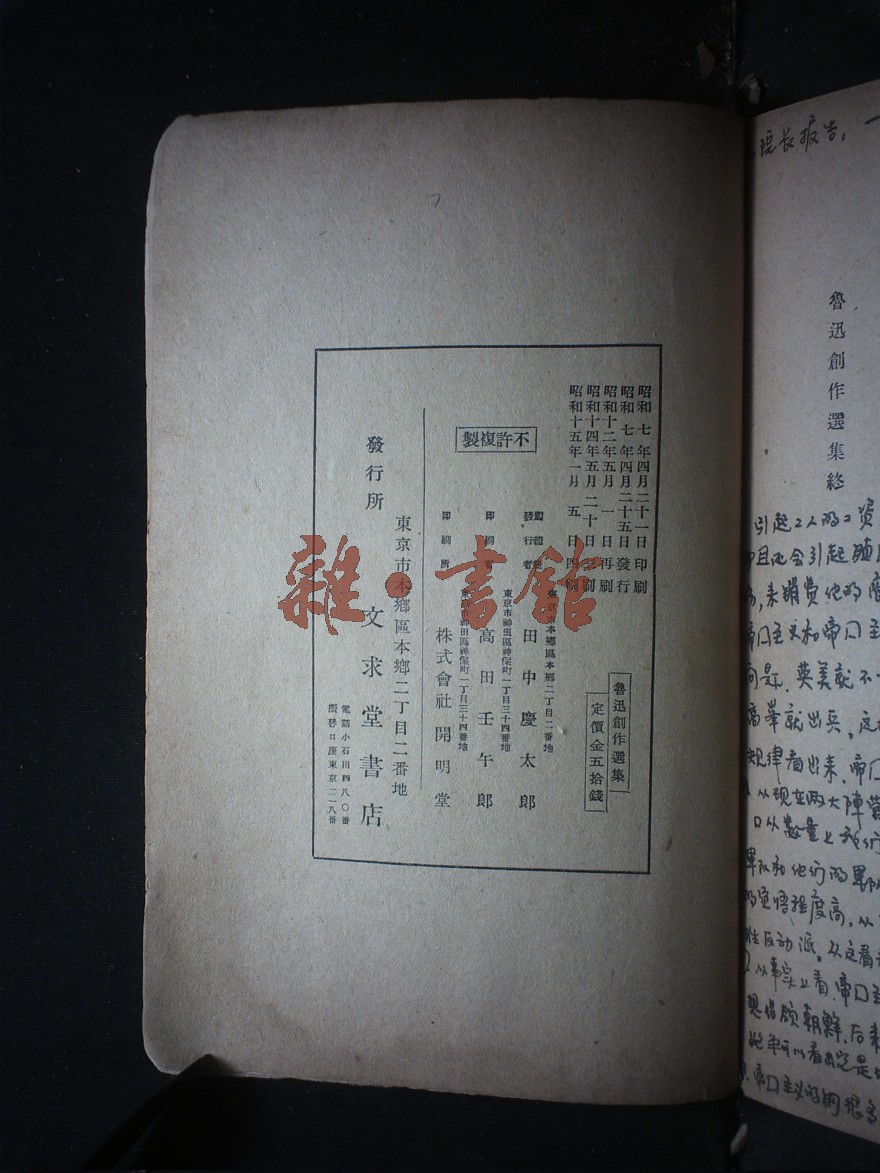 院长报告：一
魯迅創作選集終
引起工人的工资
来消费他的
帝口主义和帝口主
问题、英美就不一
就出兵。这
规律看出来、帝口
从现在两大阵营
只从数量上我们
和他们的
的觉悟程度高，从
反动派。从这看
从事实上看，帝口主
想侵领朝鲜，后来
可以看出它是
帝口主义的
昭和七年四月二十一日印刷
昭和七年四月二十五日發行
昭和十二年五月一日再刷
昭和十四年五月二十日三刷
昭和十五年一月五日四刷
魯迅創作選集
定價金五拾錢
不許複製
東京市本鄉區本鄉二丁目二番地
發行者
田中慶太郎
東京市神田區神保町一丁目三十四番地
印刷者
高田壬午郎
東京市神田區神保町一丁目三十四番地
印刷所
株式會社開明堂
東京市本鄉區本鄉二丁目二番地
發行所
文求堂書店
電話小石川四八〇番
振替口座東京二一八番
雜·書館